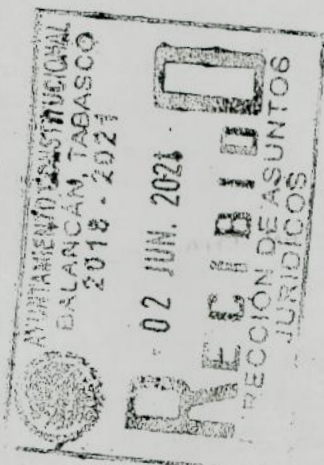 AYUNTAMIENTO CONSTITUCIONAL
BALANCÁN, TABASCO
2018 - 2021
02 JUN. 2021
RECIBIDO
DIRECCIÓN DE ASUNTOS
JURÍDICOS